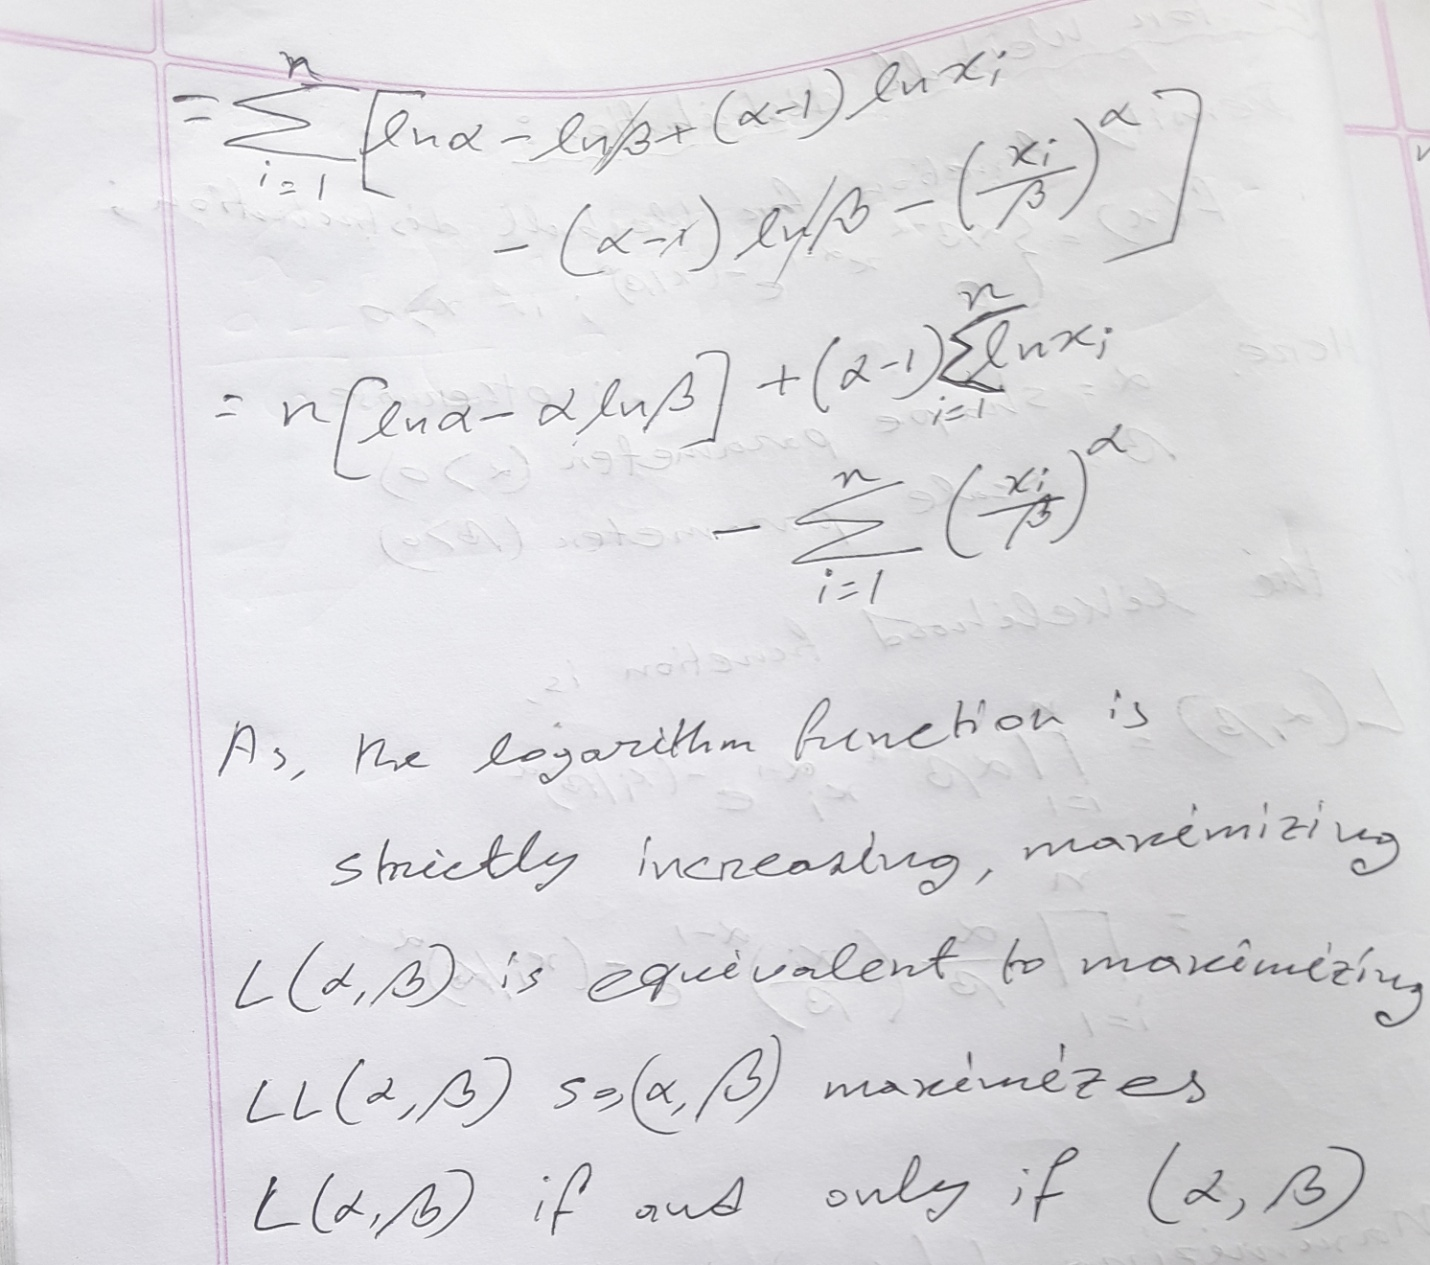 = \sum_{i=1}^{n} [ ln α - ln β + (α-1) ln x_i
- (α-1) ln β - (x_i/β)^α ]
= n [ ln α - α ln β ] + (α-1) \sum_{i=1}^{n} ln x_i
- \sum_{i=1}^{n} (x_i/β)^α
As, the logarithm function is
strictly increasing, maximizing
L(α,β) is equivalent to maximizing
LL(α,β) so, (α,β) maximizes
L(α,β) if and only if (α,β)